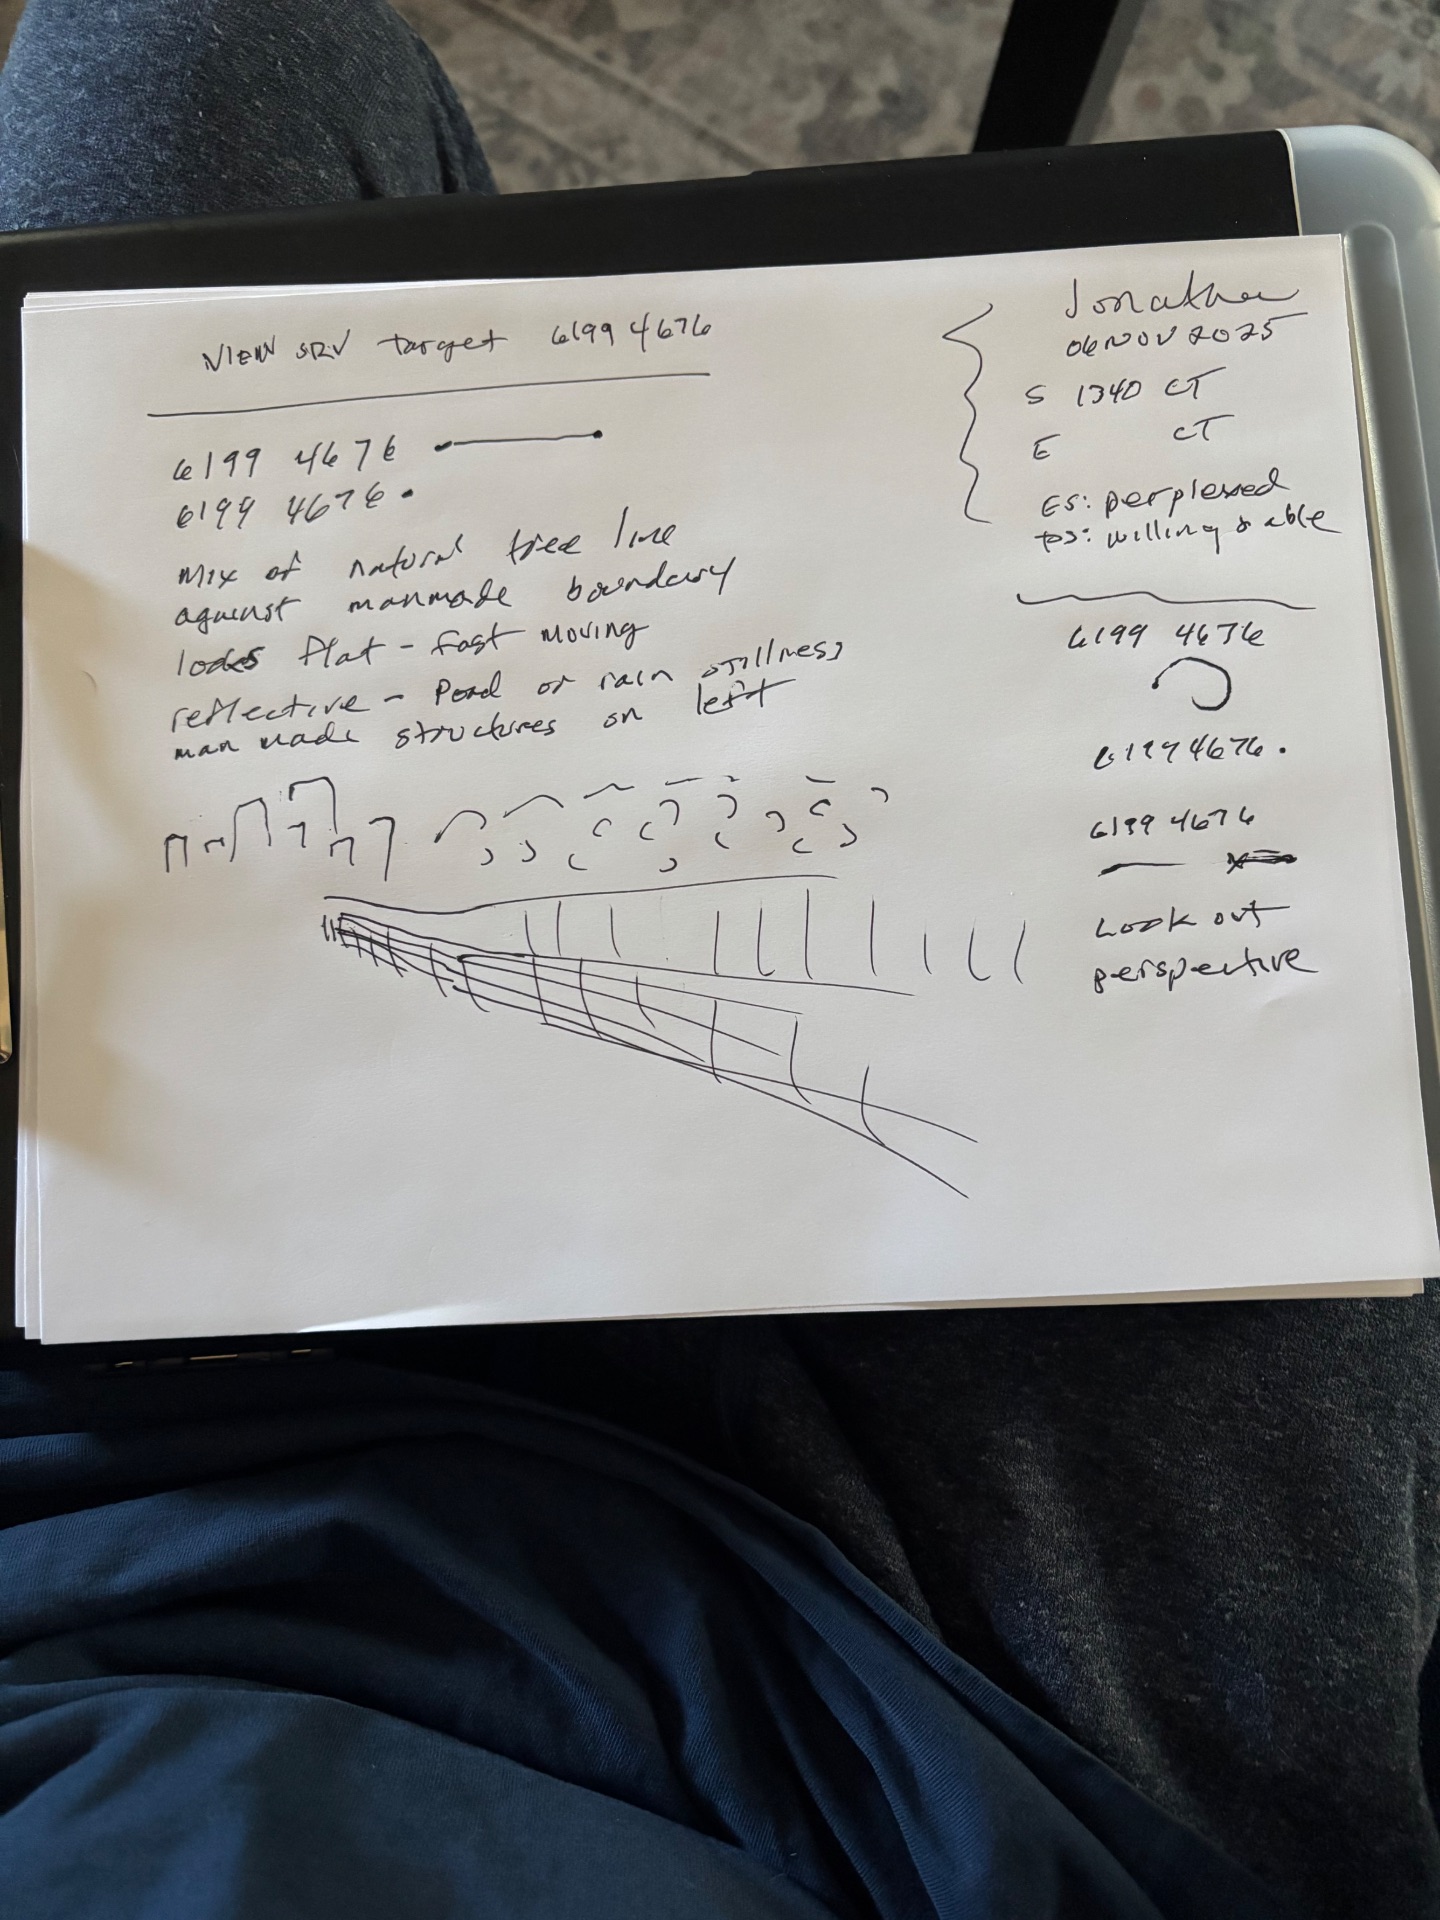 VIEW SRV target 6199 4676
6199 4676
6199 4676.
Mix of natural tree line
against manmade boundary
looks flat - fast moving
reflective - Pond or rain stillness
man made structures on left
Jonathan
06 NOV 2025
S 1340 CT
E CT
ES: perplexed
PS: willing & able
6199 4676
6199 4676.
6199 4676
Look out
perspective